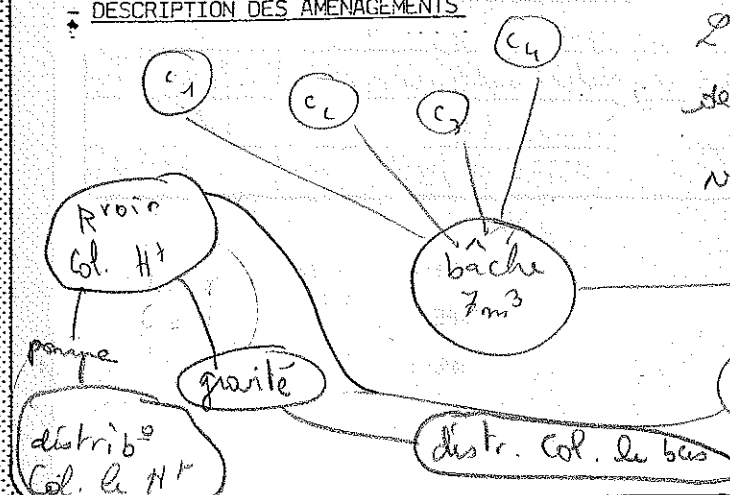 - DESCRIPTION DES AMENAGEMENTS
c4
c1
c2
c3
de
N
Rvoir
Col. Ht
bâche
7 m3
pompe
gravité
distribo
Col. le Ht
distr. Col. le bas